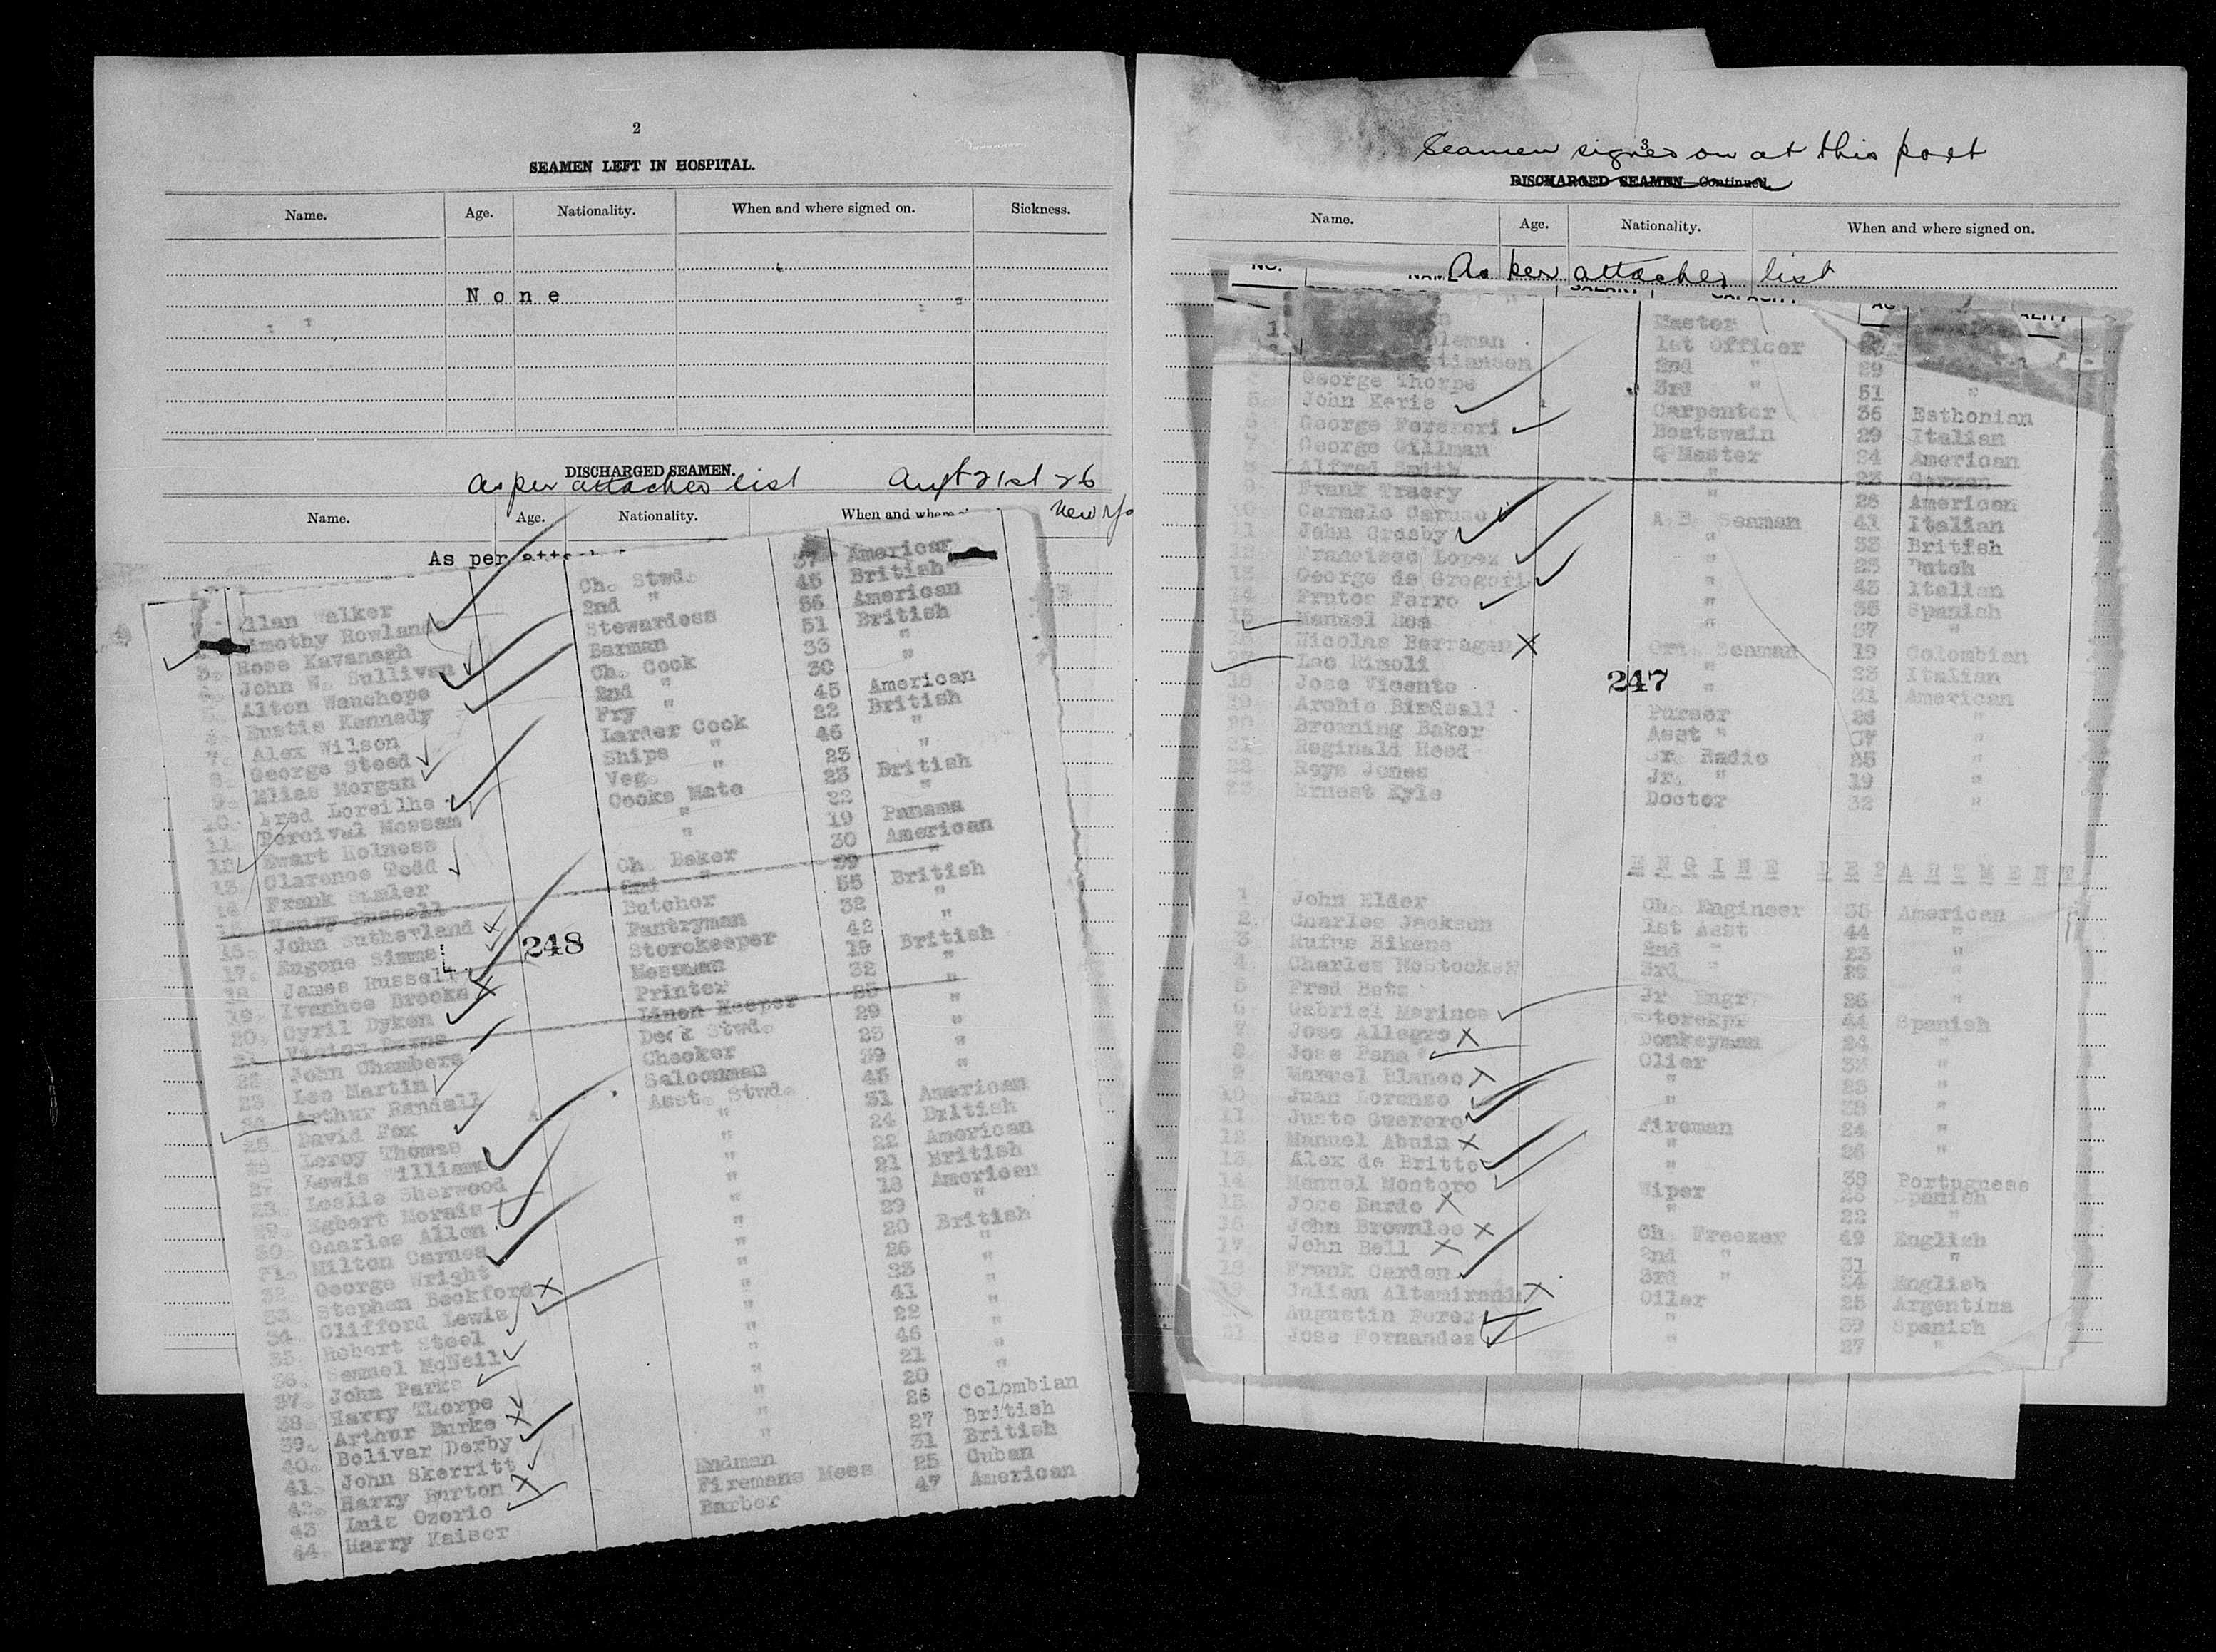 2
SEAMEN LEFT IN HOSPITAL.
Name. Age. Nationality. When and where signed on. Sickness.
None
DISCHARGED SEAMEN.
As per attached list Augt 21st 26
New Yo
Name. Age. Nationality. When and where
As per atta
37 American
Allan Walker Ch. Stwd. 45 British
Timothy Rowlands 2nd " 56 American
3. Rose Kavanagh Stewardess 51 British
4. John W. Sullivan Barman 33 "
5. Alton Wauchope Ch. Cook 30 "
6. Eustis Kennedy 2nd " 45 American
7. Alex Wilson Fry " 22 British
8. George Steed Larder Cook 46 "
9. Elias Morgan Ships " 23 "
10. Fred Loreilhe Veg. " 23 British
11. Percival Messam Cooks Mate 22 "
12. Ewart Holness " 19 Panama
13. Clarence Todd " 30 American
14. Frank Simler Ch. Baker 39 "
15. Henry Russell 2nd " 55 British
16. John Sutherland Butcher 32 "
17. Eugene Simms Pantryman 42 "
248
18. James Russell Storekeeper 19 British
19. Ivanhoe Brooks Messman 32 "
20. Cyril Dyken Printer 25 "
21. Linen Keeper 29 "
22. John Chambers Deck Stwd. 23 "
23. Leo Martin Checker 39 "
24. Arthur Randall Saloonman 45 "
25. David Fox Asst. Stwd. 31 American
26. Leroy Thomas " 24 British
27. Lewis Williams " 22 American
28. Leslie Sherwood " 21 British
29. Egbert Morais " 18 American
30. Charles Allen " 29 "
31. Milton Carnes " 20 British
32. George Wright " 26 "
33. Stephen Beckford " 23 "
34. Clifford Lewis " 41 "
35. Robert Steel " 22 "
36. Samuel McNeil " 46 "
37. John Parks " 21 "
38. Harry Thorpe " 20 "
39. Arthur Burke " 26 Colombian
40. Bolivar Derby " 27 British
41. John Skerritt " 31 British
42. Harry Burton Endman 25 Cuban
43. Luis Ozorio Firemans Mess 47 American
44. Harry Kaiser Barber
3
Seamen signed on at this port
DISCHARGED SEAMEN—Continued.
Name. Age. Nationality. When and where signed on.
As per attached list
NO. NAME SALARY CAPACITY
1 Master
1st Officer
2nd " 29
George Thorpe 3rd " 51 "
5. John Keris Carpenter 36 Esthonian
6 George Ferereri Boatswain 29 Italian
7 George Gillman Q-Master 24 American
8 Alfred Smith " 23 German
9 Frank Tracey " 26 American
10 Carmelo Caruso A.B. Seaman 41 Italian
11 John Crosby " 33 British
12 Francisco Lopez " 23 Dutch
13 George de Gregori " 43 Italian
14 Frutos Ferro " 36 Spanish
15 Manuel Rea " 37 "
16 Nicolas Barragan Ord. Seaman 19 Colombian
17 Leo Rimoli " 23 Italian
247
18 Jose Vicente " 31 American
19 Archie Birdsall Purser 26 "
20 Browning Baker Asst " 37 "
21 Reginald Hood Sr. Radio 25 "
22 Roys Jones Jr. " 19 "
23 Ernest Kyle Doctor 32 "
ENGINE DEPARTMENT
1 John Elder Ch. Engineer 35 American
2. Charles Jackson 1st Asst 44 "
3 Rufus Hikens 2nd " 23 "
4 Charles McStocker 3rd " 29 "
5 Fred Bets Jr Engr. 26 "
6 Gabriel Marinos Storekpr 44 Spanish
7 Jose Allegro Donkeyman 24 "
8 Jose Pena Olier 33 "
9 Manuel Blanco " 28 "
10 Juan Lorenzo " 38 "
11 Justo Guerero Fireman 24 "
12 Manuel Abuin " 26 "
13. Alex de Britto " 38 Portuguese
14 Manuel Montoro Wiper 25 Spanish
15 Jose Bardo " 22 "
16 John Brownlee Ch. Freezer 49 English
17 John Bell 2nd " 31 "
18 Frank Carden 3rd " 24 English
19 Julian Altamirania Oiler 25 Argentina
Augustin Perez " 39 Spanish
21 Jose Fernandez " 27 "